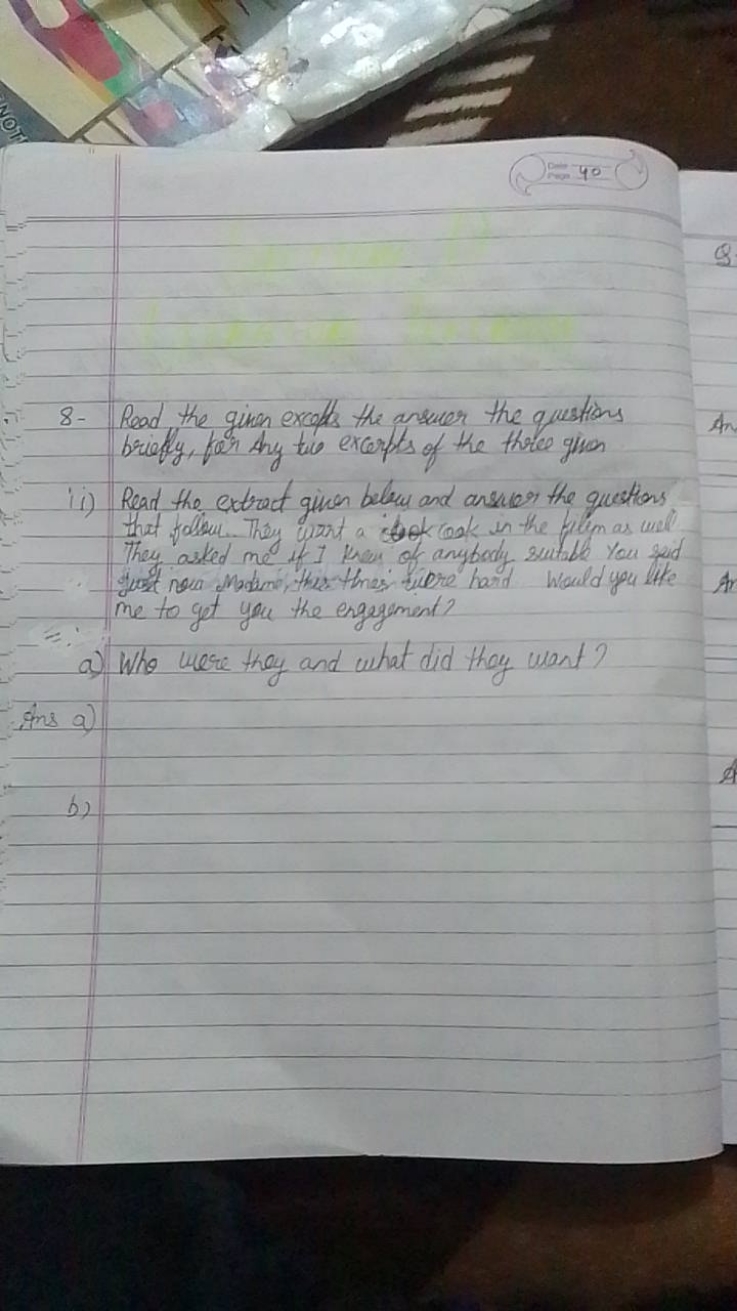 NOT
Date
Page 40
8- Read the given excepts the answer the questions
briefly, for Any two excerpts of the three given
ii) Read the extract given below and answer the questions
that follow. They want a cook in the film as well
They asked me if I knew of anybody suitable You said
just now Madame, the times were hard Would you like
me to get you the engagement?
a) Who were they and what did they want?
Ans a)
b)
Q
An
An
A